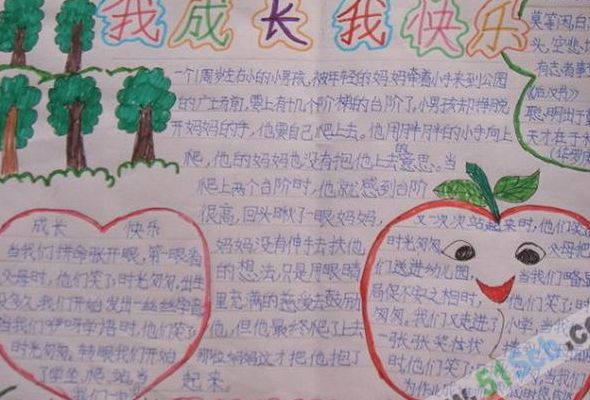 我成长 我快乐
一个1周岁左右的小男孩，被年轻的妈妈牵着小手来到公园
的广场前，要上有十几个阶梯的台阶了，小男孩却挣脱
开妈妈的手，他要自己爬上去。他用胖胖的小手向上
爬，他的妈妈也没有抱他上去的意思。当
爬上两个台阶时，他就感到台阶
很高，回头瞅了一眼妈妈，
妈妈没有伸手去扶他
的想法，只是用眼睛
里充满的慈爱去鼓励
他，但他最终爬了上去
那位妈妈这才把他抱了
起来。
成长 快乐
当我们拼命张开眼，第一眼看
父母时，他们笑了；时光匆匆，出生
没多久，我们开始发出一丝丝字音
当我们咿呀学语时，他们笑了
时光匆匆，转眼我们开始
了学坐，爬，站，当
我们一
又一次次站起来时，他们笑
时光匆匆， 父母把
们送进幼儿园， 当我们略显
局促不安之相时， 他们笑了；时
匆匆，我们又走进了小学，当我
一张张奖状
时，他们笑了；
为作业
莫等闲白
头，空悲
有志者事
《后汉书》
聪明出于
天才在于
(华罗庚